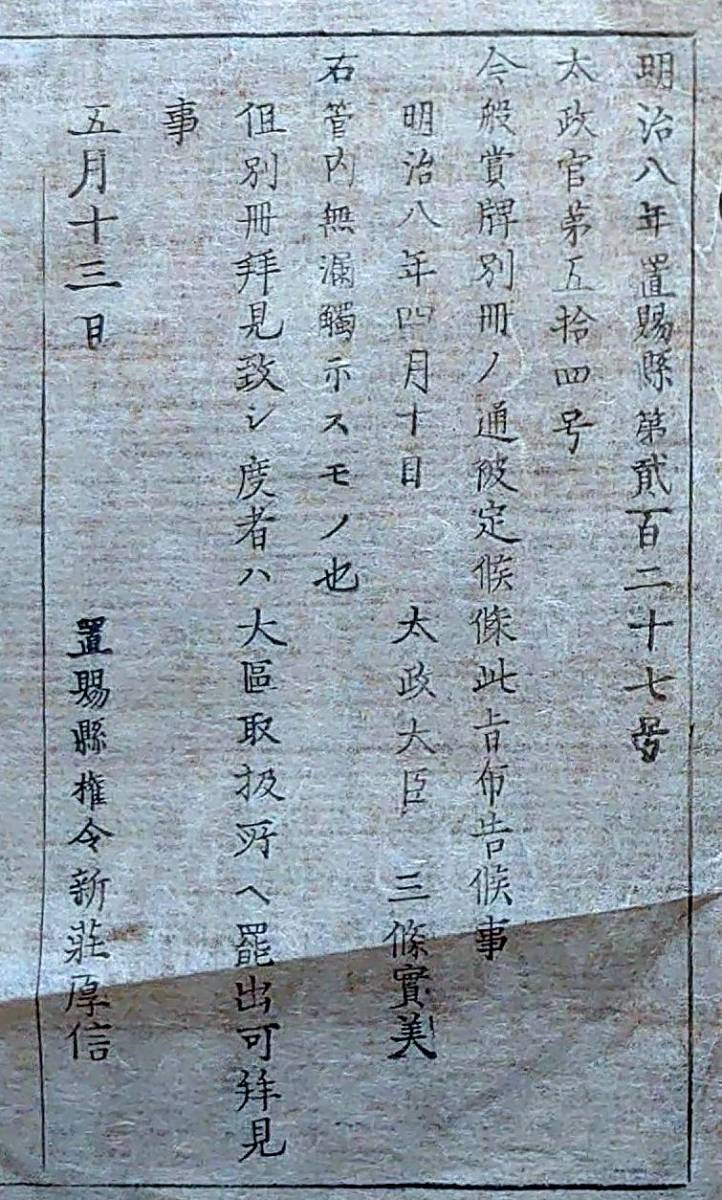 明治八年置賜縣第貳百二十七号
太政官第五拾四号
今般賞牌別冊ノ通被定候條此旨布告候事
明治八年四月十日 太政大臣 三條實美
右管内無漏觸示スモノ也
但別冊拜見致シ度者ハ大區取扱所ヘ罷出可拜見
事
五月十三日 置賜縣権令新莊厚信